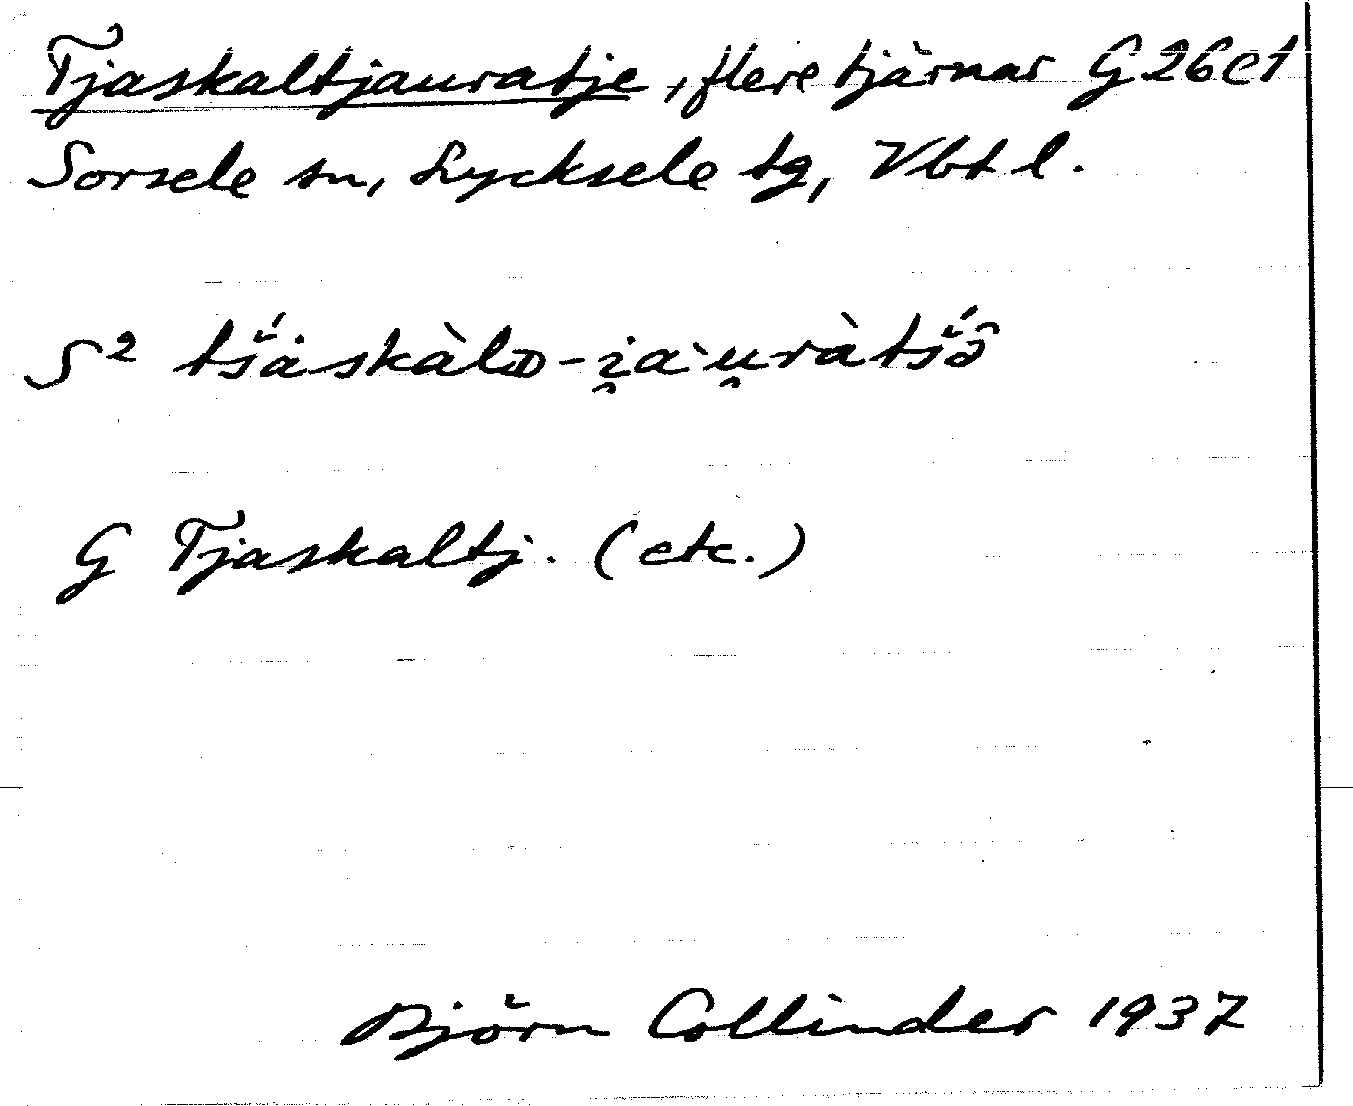 Tjaskaltjauratje, flere tjärnar G 26 e 1
Sorsele sn, Lycksele tg, Vbt l.
S² tš́ȧskàlᴅ-i̯a`u̯ràtš́ə̑
G Tjaskaltj. (etc.)
Björn Collinder 1937